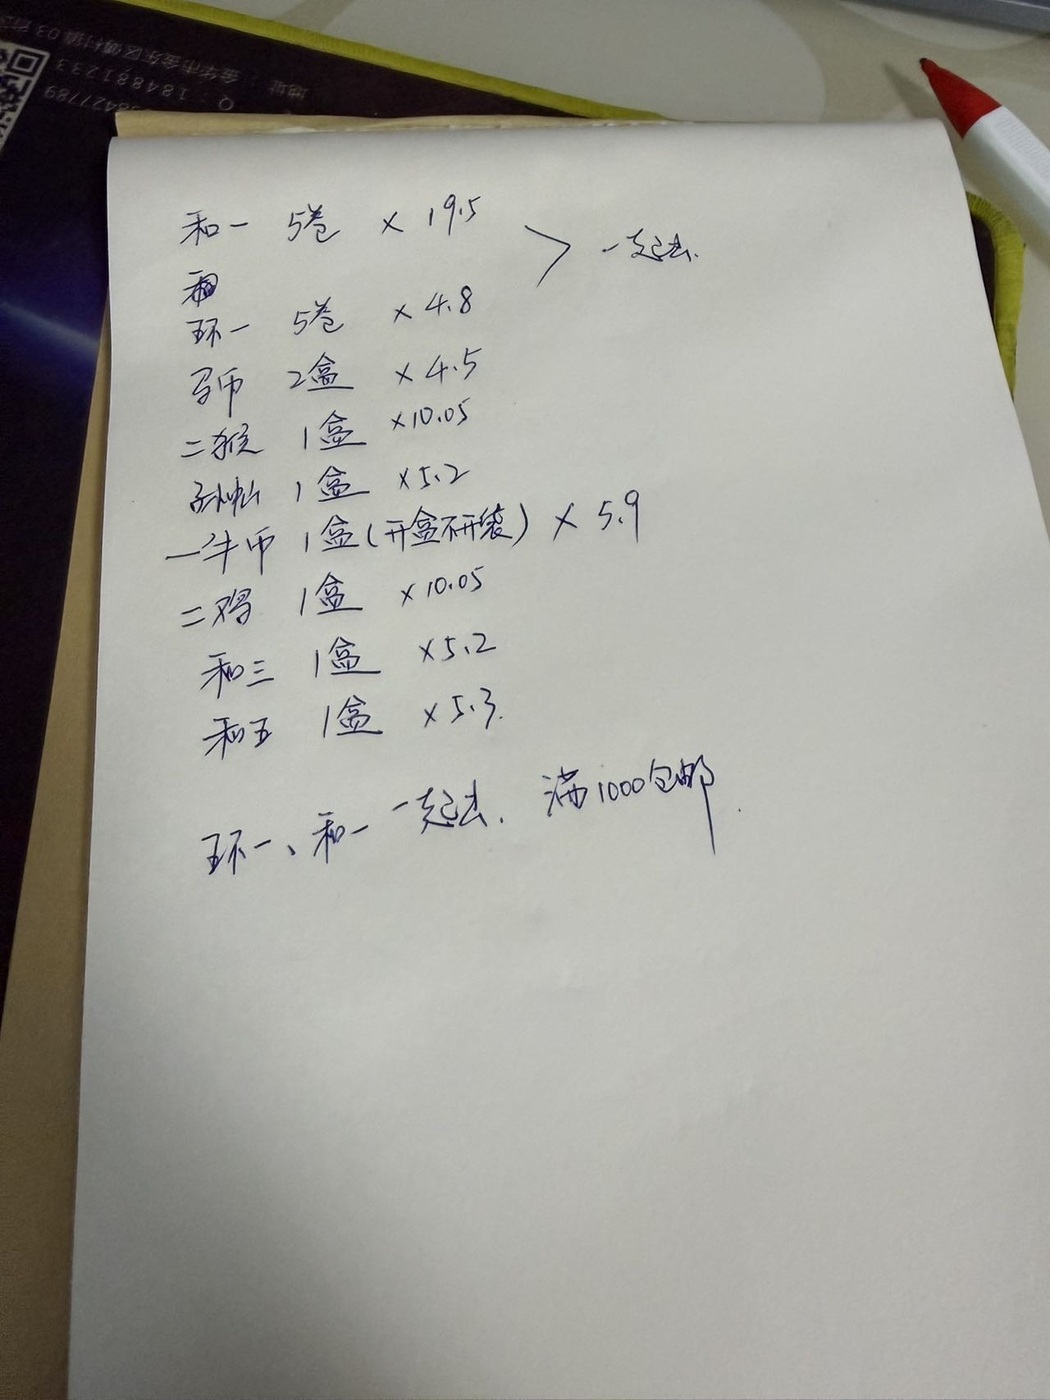 地址：金华市金东区
Q：184881233
38427789
和一 5卷 ×19.5
一起去.
环一 5卷 ×4.8
马币 2盒 ×4.5
二猴 1盒 ×10.05
孙中山 1盒 ×5.2
一牛币 1盒(开盒不开袋) ×5.9
二鸡 1盒 ×10.05
和三 1盒 ×5.2
和五 1盒 ×5.3.
环一、和一 一起去. 满1000包邮.